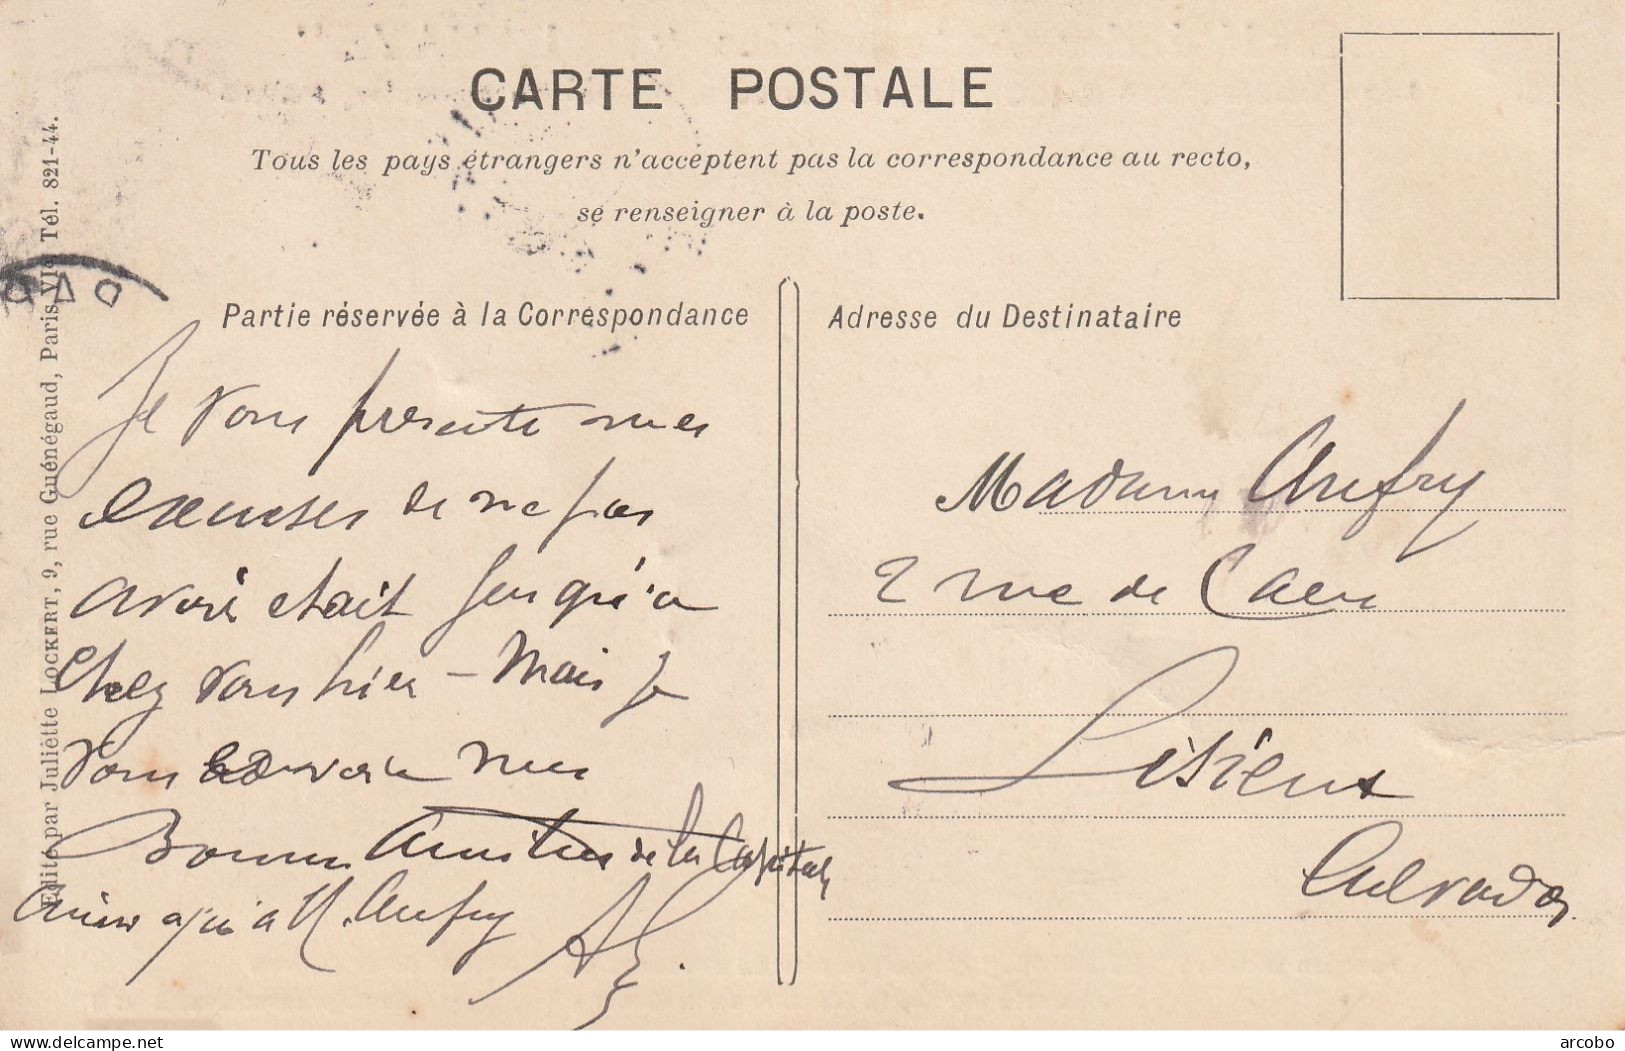 CARTE POSTALE
Tous les pays étrangers n'acceptent pas la correspondance au recto,
se renseigner à la poste.
Edité par Juliette LOCKERT, 9, rue Guénégaud, Paris VIe Tél. 821-44.
Partie réservée à la Correspondance
Je vous présente mes
excuses de ne pas
avoir était jusqu'a
chez vous hier – Mais je
vous envoie mes
Bonnes Amitiés de la Capitale
ainsi qu'a M. Aufry
Adresse du Destinataire
Madame Aufry
2 rue de Caen
Lisieux
Calvados
delcampe.net
arcobo